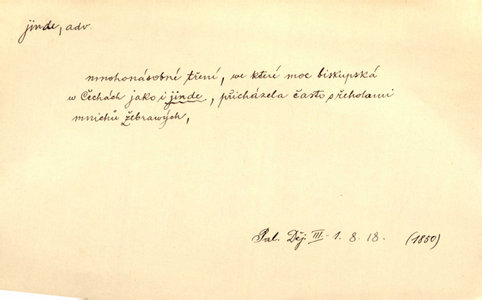 jinde, adv.
mnohonásobné tření, we které moc biskupská
w Čechách jako i jinde, přicházela často s řeholami
mnichů žebrawých,
Pal. Děj. III. 1. 8. 18. (1850)